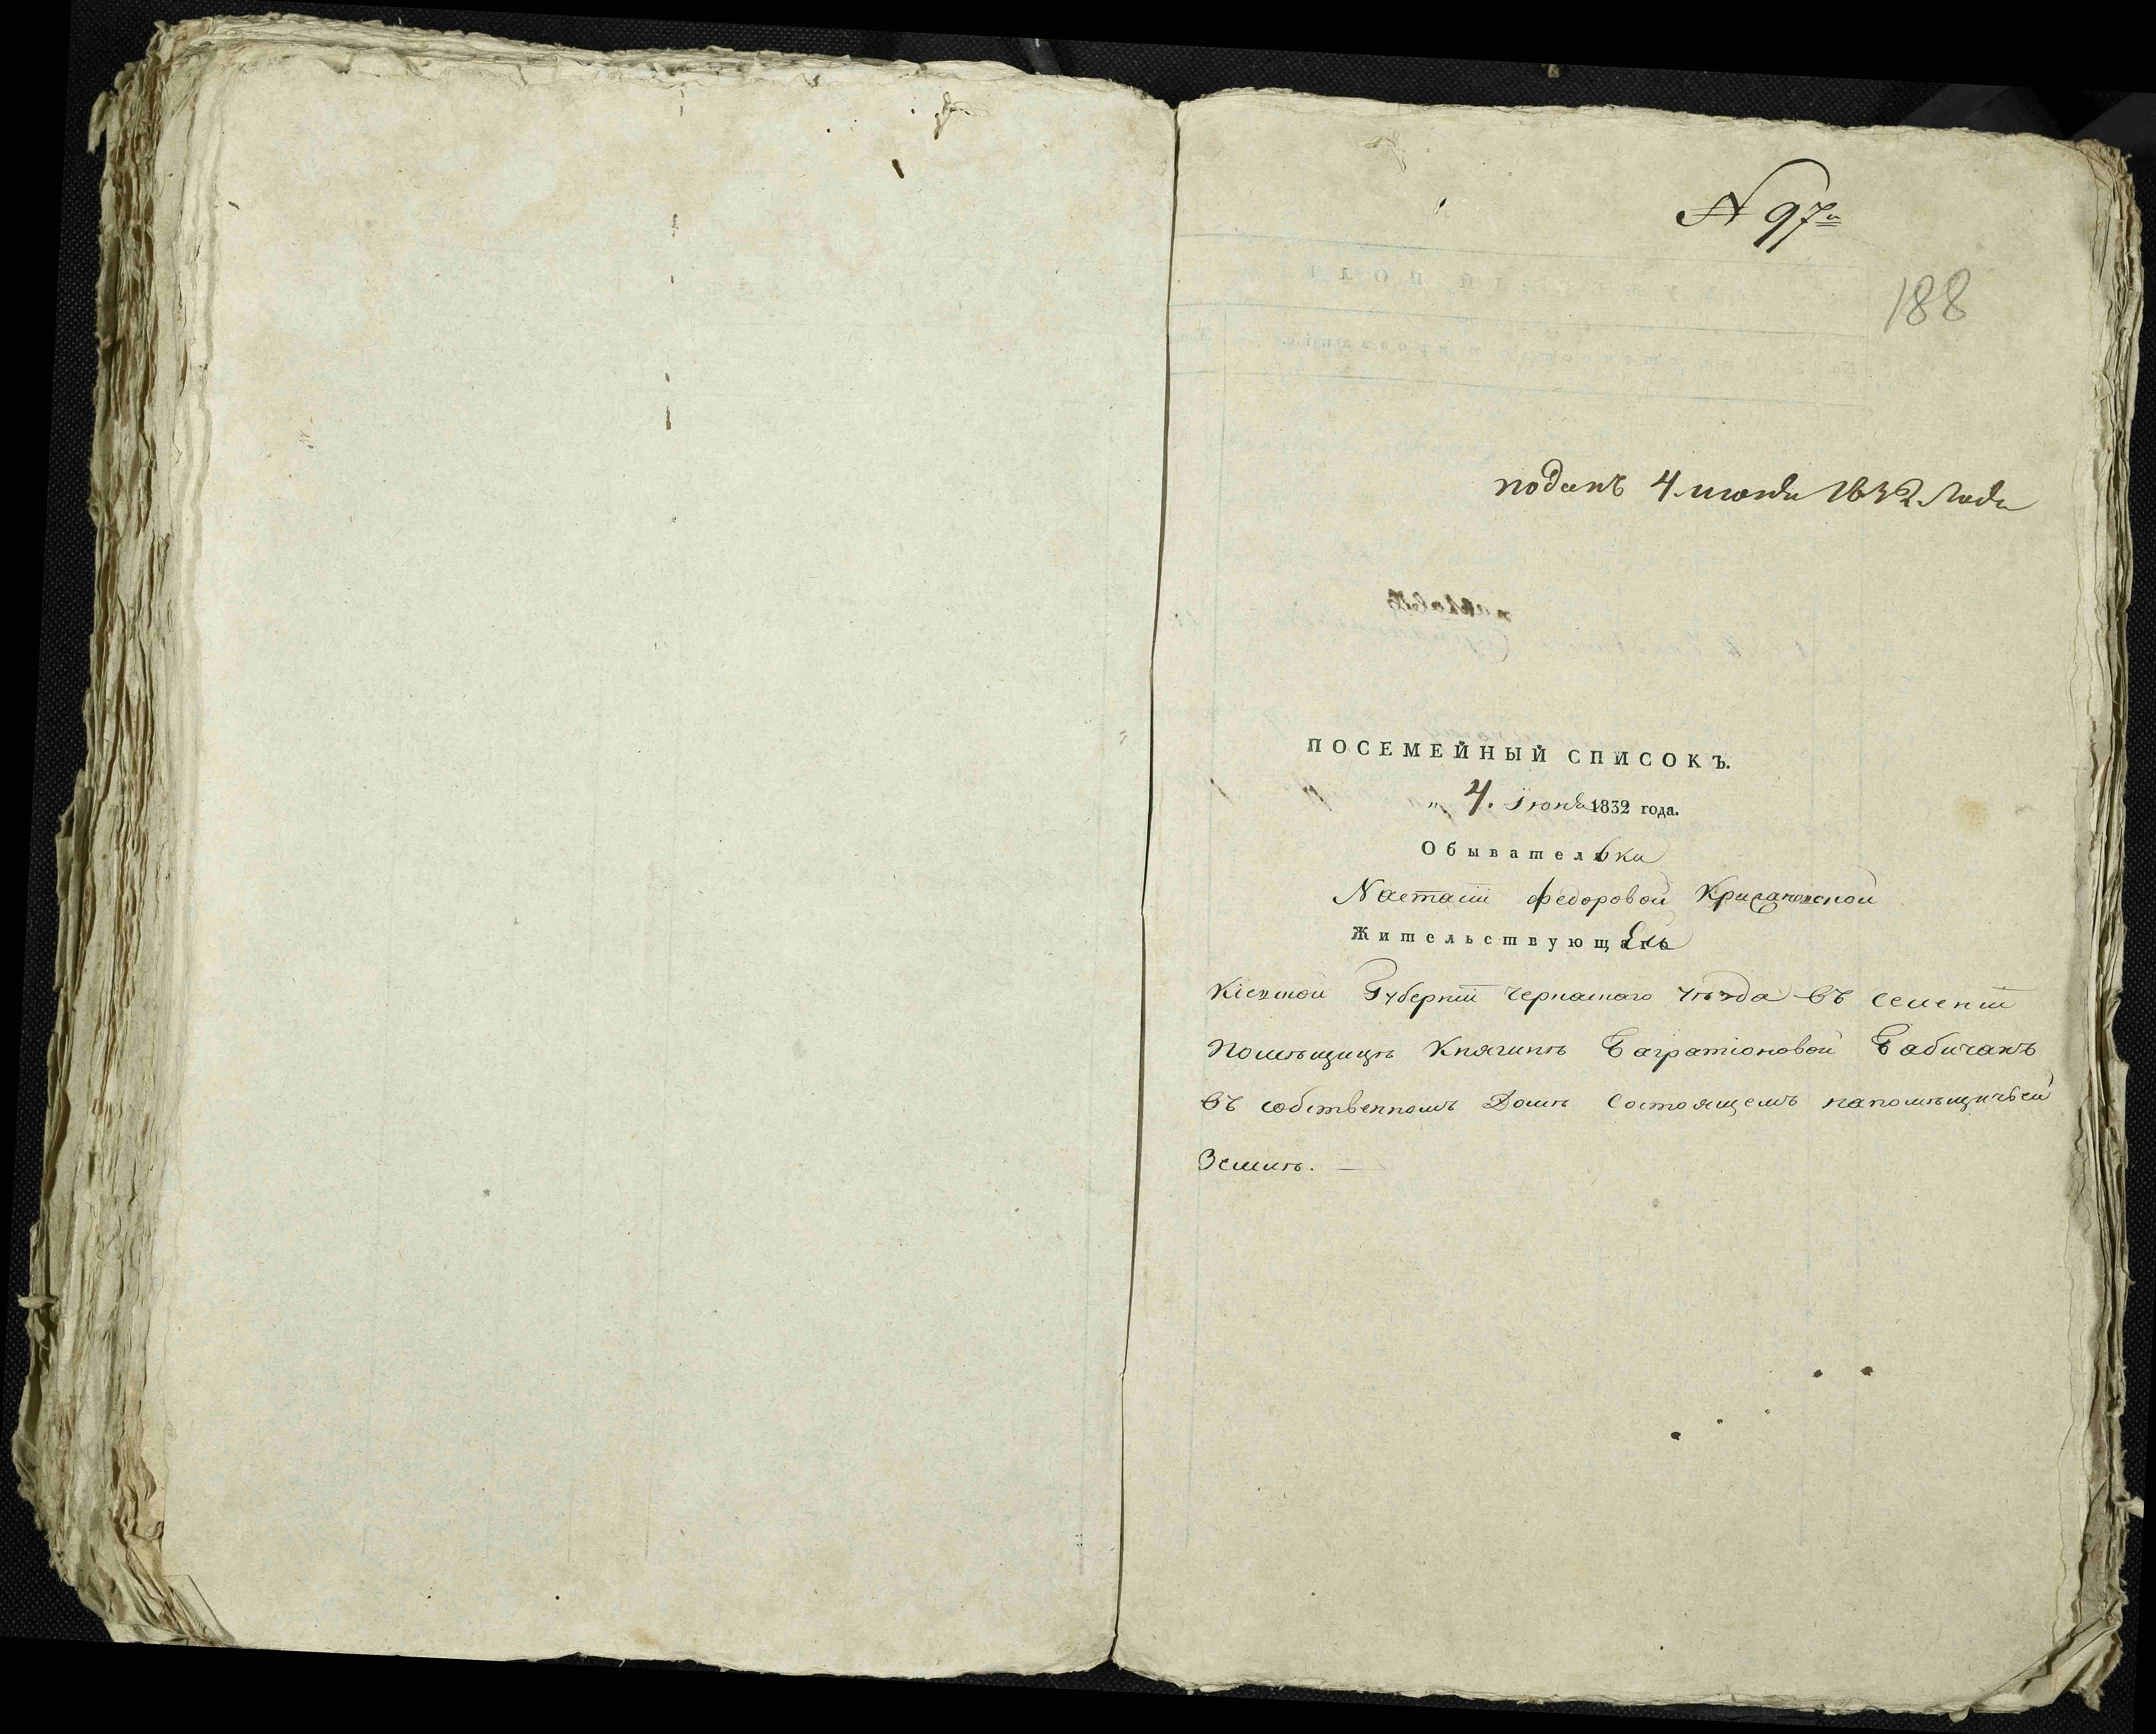 N 97й
188
поданъ 4 июня 1832 Года
ПОСЕМЕЙНЫЙ СПИСОКЪ.
„ 4. Іюня 1832 года.
Обывателька
Настасіи Федоровой
Жительствующей
Кіевской Губерніи Черкаскаго уѣзда въ селеніи
Помѣщицѣ Княгинѣ Багратіоновой Бабичахъ
въ собственномъ Домѣ Состоящемъ напомѣщичьей
Землѣ.